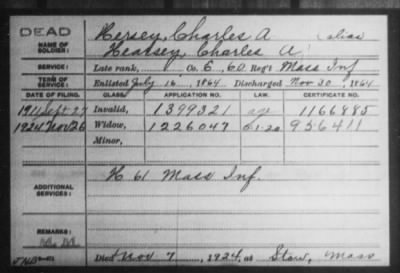 DEAD Hersey, Charles A alias
NAME OF SOLDIER: Hearsey, Charles A
SERVICE: Late rank, Co. E, 60 Reg't Mass Inf
TERM OF SERVICE: Enlisted July 16, 1864. Discharged Nov 30, 1864
DATE OF FILING. CLASS. APPLICATION NO. LAW. CERTIFICATE NO.
1911 Sept 27 Invalid, 1399321 age 1166885
1924 Nov 26 Widow, 1226047 956411
Minor,
ADDITIONAL SERVICES: H 61 Mass Inf.
REMARKS:
Died Nov 7, 1924, at Stow, Mass